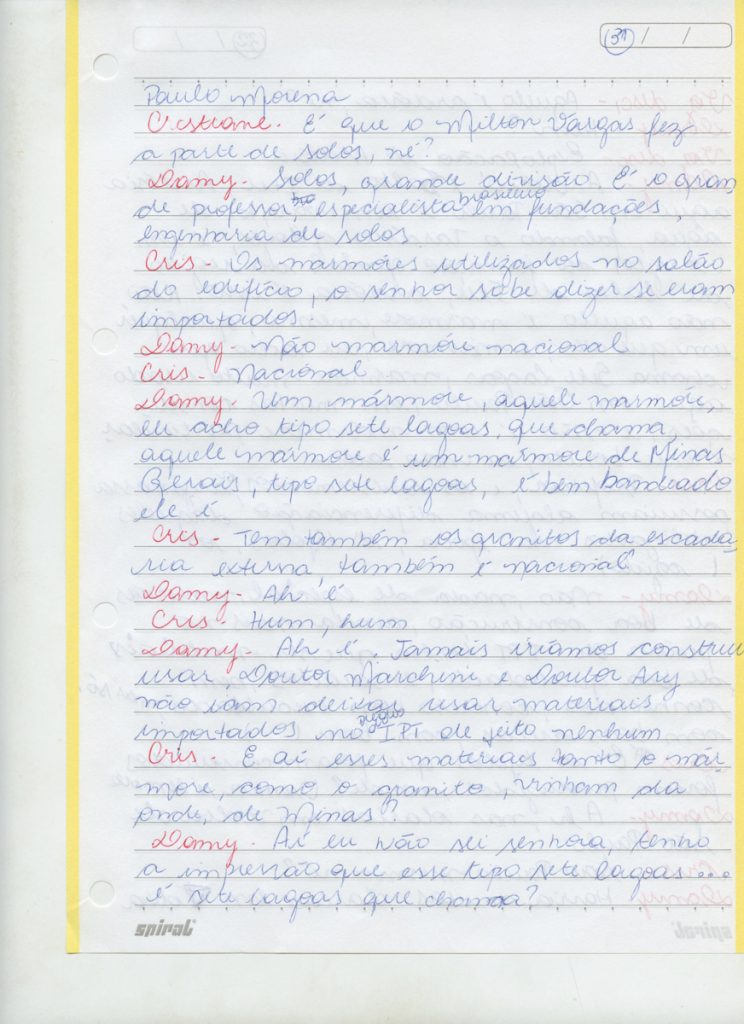 31 / /
Paulo Morena
Cristiane - É que o Milton Vargas fez
a parte de solos, né?
Damy - Solos, grande divisão. É o gran
de professor, especialista brasileiro em fundações,
engenharia de solos
Cris - Os marmóres utilizados no salão
do edifício, o senhor sabe dizer se eram
importados
Damy - Não marmóre nacional
Cris - Nacional
Damy - Um mármore, aquele marmóre,
eu acho tipo sete lagoas, que chama,
aquele marmore é um marmore de Minas
Gerais, tipo sete lagoas, é bem bandeado
ele é
Cris - Tem também os granitos da escada
ria externa, também é nacional?
Damy - Ah é
Cris - Hum, hum
Damy - Ah é. Jamais iríamos construir
usar, Doutor Marchini e Doutor Ary
não iam deixar usar materiais
importados no IPT de jeito nenhum
Cris - E aí esses materiais tanto o már
more, como o granito, vinham da
onde, de Minas?
Damy - Aí eu não sei senhora, tenho
a impressão que esse tipo sete lagoas...
é sete lagoas que chama?
spiral